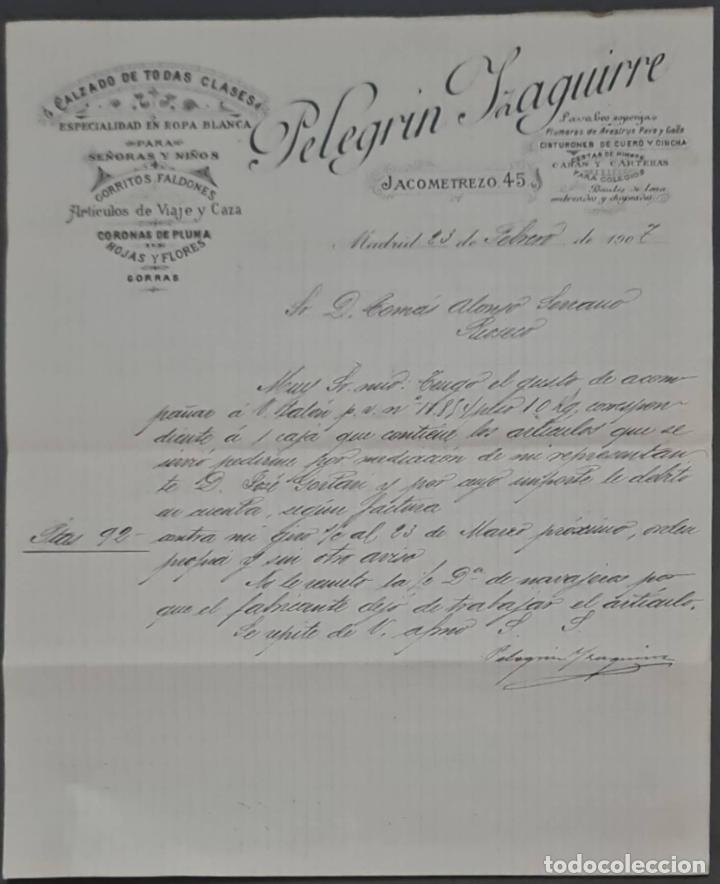 CALZADO DE TODAS CLASES
ESPECIALIDAD EN ROPA BLANCA
PARA
SEÑORAS Y NIÑOS
GORRITOS, FALDONES
Artículos de Viaje y Caza
CORONAS DE PLUMA
HOJAS Y FLORES
GORRAS
Pelegrin Yzaguirre
JACOMETREZO, 45
Plumeros de Avestruz Pavo y Gallo
CINTURONES DE CUERO Y CINCHA
CESTAS DE MIMBRE
CABÁS Y CARTERAS
PARA COLEGIOS
Baules de lona
Madrid 23 de Febrero de 1907
Sr. D. Tomás Alonso Serrano
Rioseco
Muy Sr. mio: Tengo el gusto de acom
pañar á V. Talón p. v. nº peso 10 kg, correspon-
diente á 1 caja que contiene los artículos que se
sirvió pedirme por mediación de mi representan
te D. José y por cuyo importe le debito
en cuenta, según factura
Ptas 92- contra mi giro s/c al 23 de Marzo próximo, orden
propia y sin otro aviso
No le remito la Dª de navajeros por
que el fabricante dejó de trabajar el artículo.
Se repite de V. afmo S. S.
Pelegrin Yzaguirre
todocoleccion
todocoleccion.net